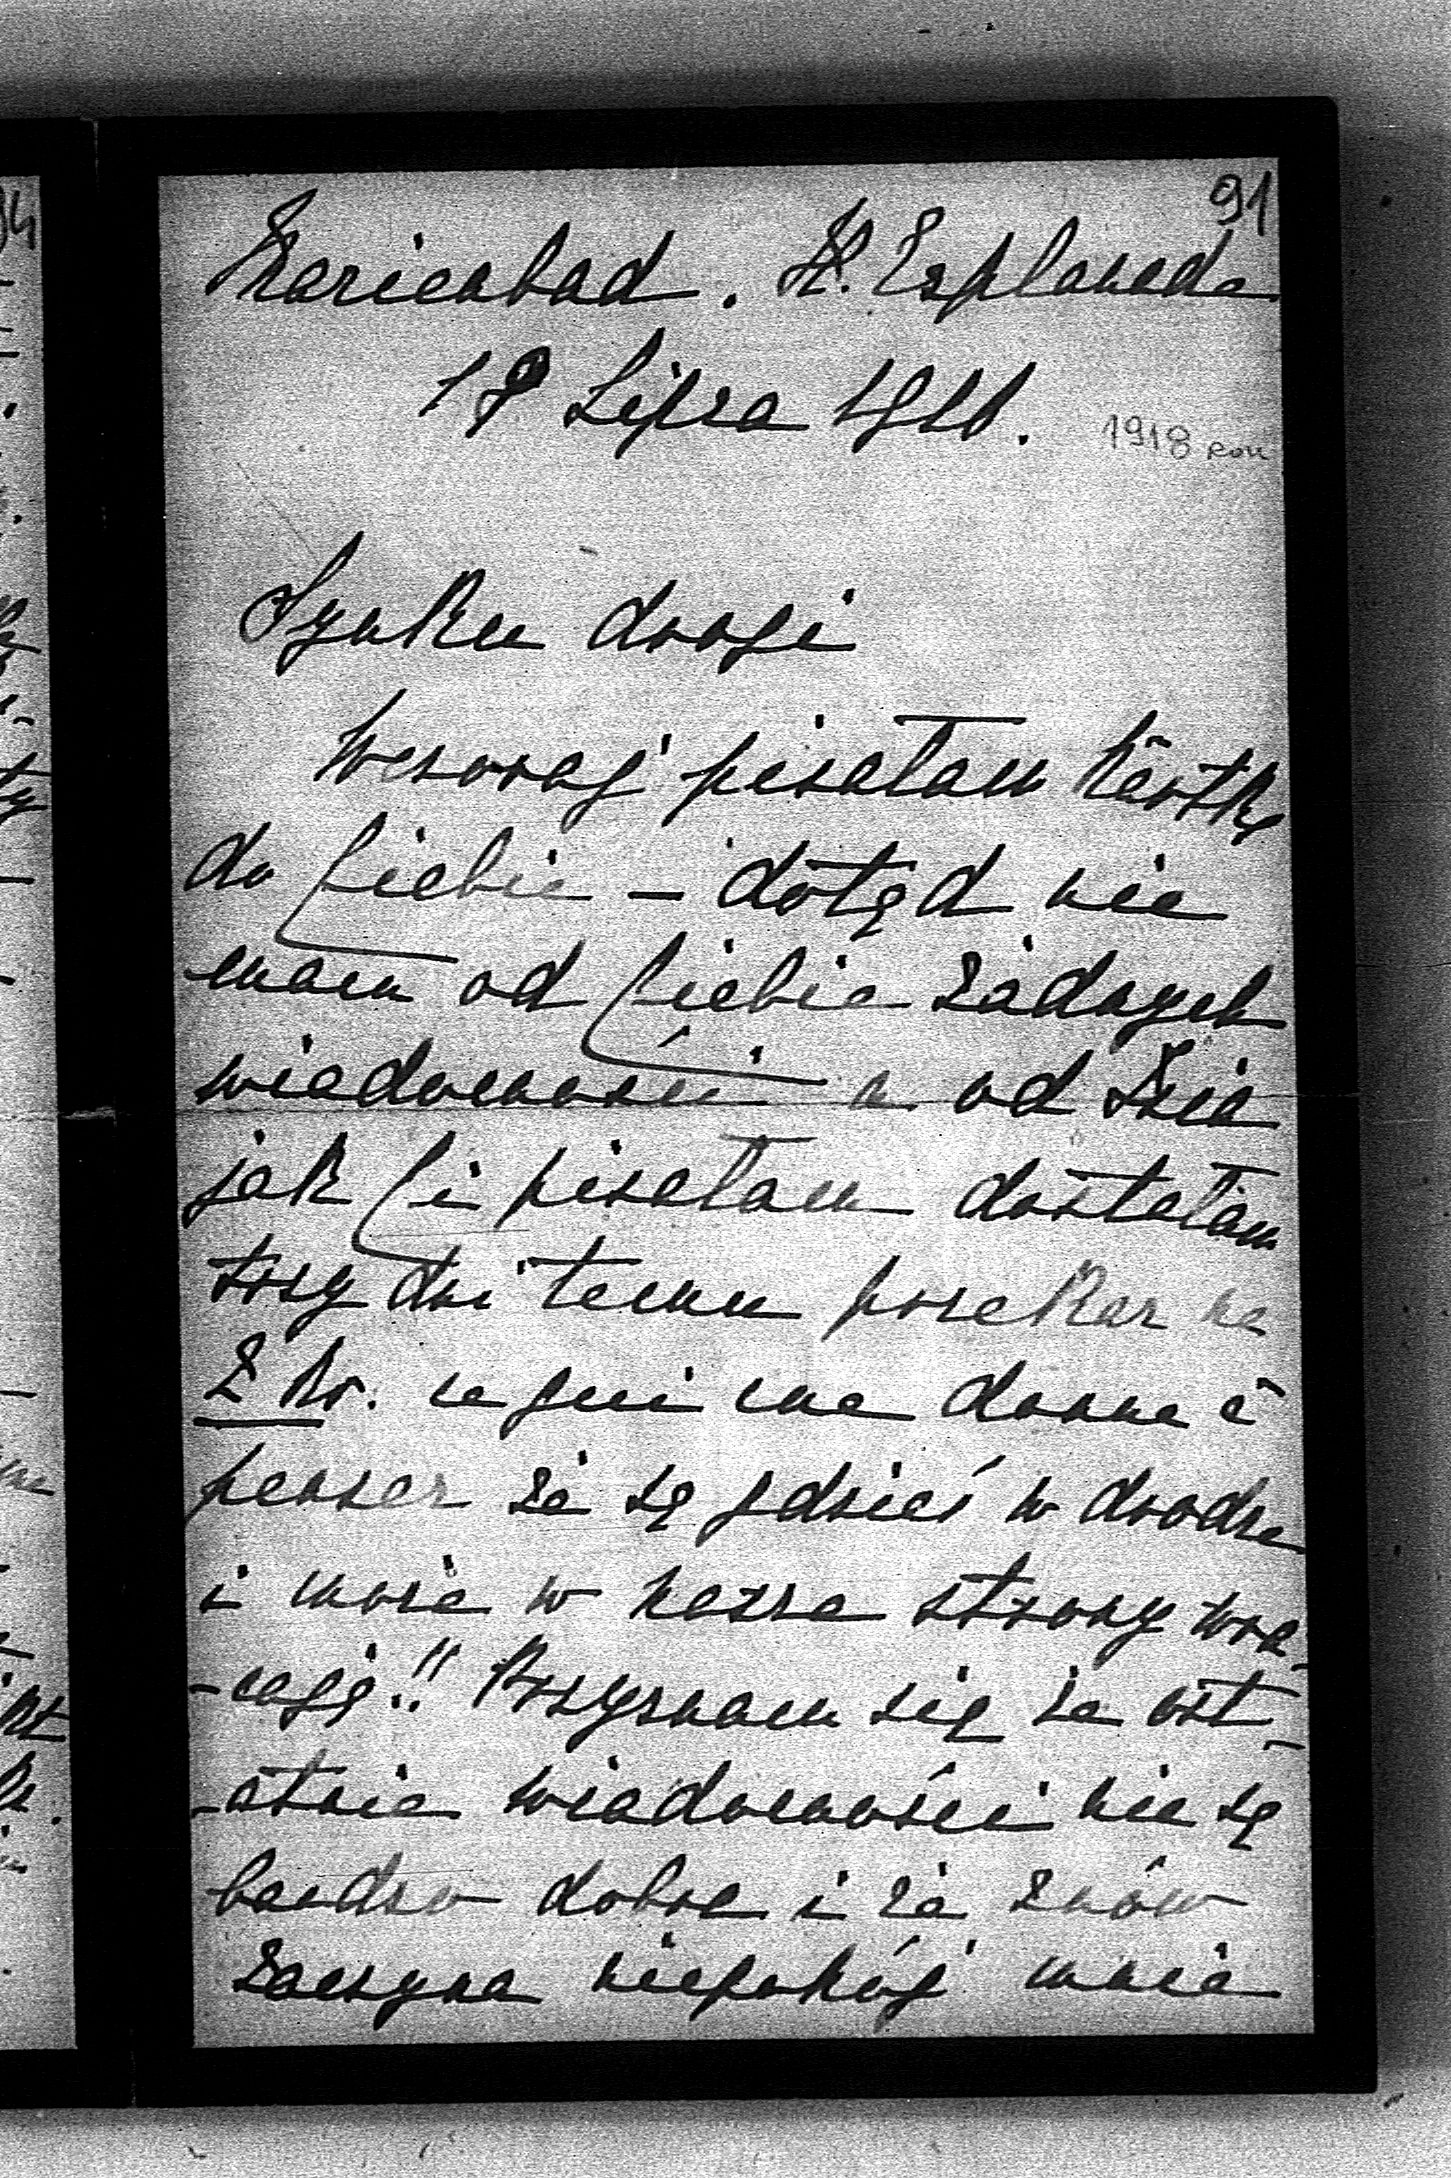 91
Marienbad. H. Esplanade
1918 rok
Synku drogi
Wczoraj pisałam kartkę
do Ciebie – dotąd nie
mam od Ciebie żadnych
wiadomości a od Zia
jak Ci pisałam dostałam
trzy dni temu przekaz na
2 kr. ce qui me donne à
penser że są gdzieś w drodze
i może w nasze strony wra-
-cają!! Przyznam się że ost-
-atnie wiadomości nie są
bardzo dobre i że znów
zaczyna niepokój mnie